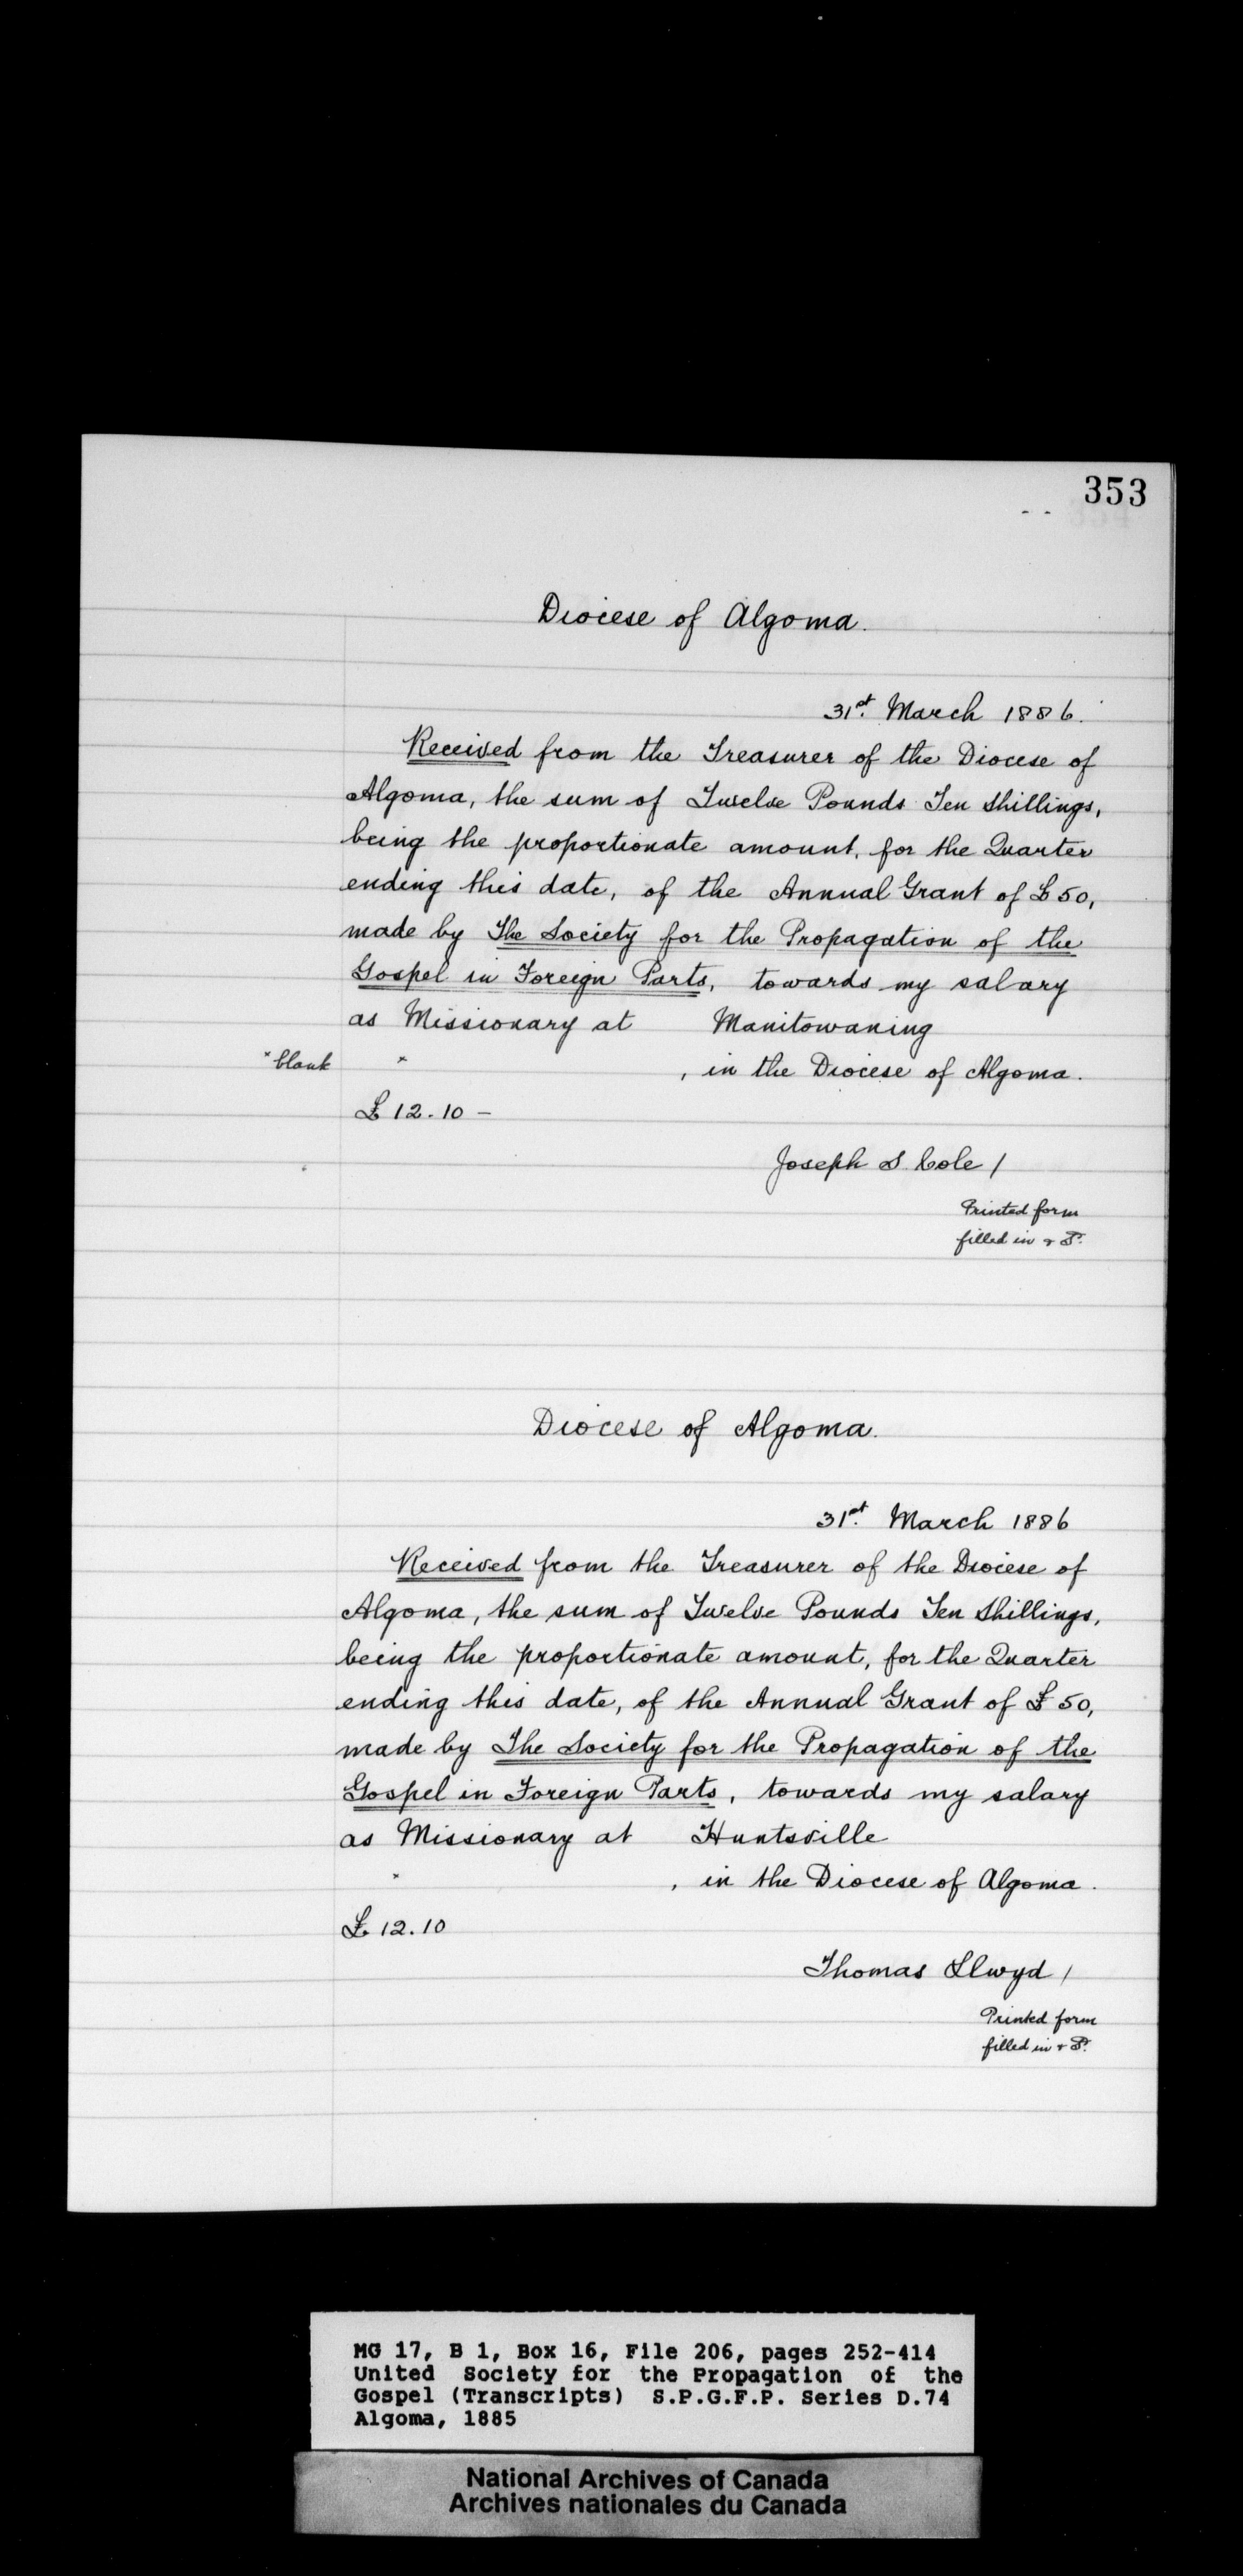 353
Diocese of Algoma.
31st March 1886.
Received from the Treasurer of the Diocese of
Algoma, the sum of Twelve Pounds Ten Shillings,
being the proportionate amount, for the Quarter
ending this date, of the Annual Grant of £50,
made by The Society for the Propagation of the
Gospel in Foreign Parts, towards my salary
as Missionary at Manitowaning
* blank * , in the Diocese of Algoma.
£12.10 -
Joseph S. Cole /
Printed form
filled in &
Diocese of Algoma.
31st March 1886
Received from the Treasurer of the Diocese of
Algoma, the sum of Twelve Pounds Ten Shillings,
being the proportionate amount, for the Quarter
ending this date, of the Annual Grant of £50,
made by The Society for the Propagation of the
Gospel in Foreign Parts, towards my salary
as Missionary at Huntsville
* , in the Diocese of Algoma.
£12.10
Thomas Llwyd /
Printed form
filled in &
MG 17, B 1, Box 16, File 206, pages 252-414
United Society for the Propagation of the
Gospel (Transcripts) S.P.G.F.P. Series D.74
Algoma, 1885
National Archives of Canada
Archives nationales du Canada